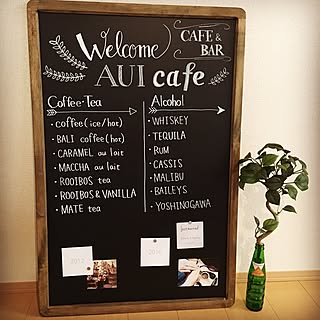 Welcome
CAFE &
BAR
AUI cafe
Coffee・Tea
・coffee (ice/hot)
・BALI coffee (hot)
・CARAMEL au lait
・MACCHA au lait
・ROOIBOS tea
・ROOIBOS & VANILLA
・MATE tea
Alcohol
・WHISKEY
・TEQUILA
・RUM
・CASSIS
・MALIBU
・BAILEYS
・YOSHINOGAWA